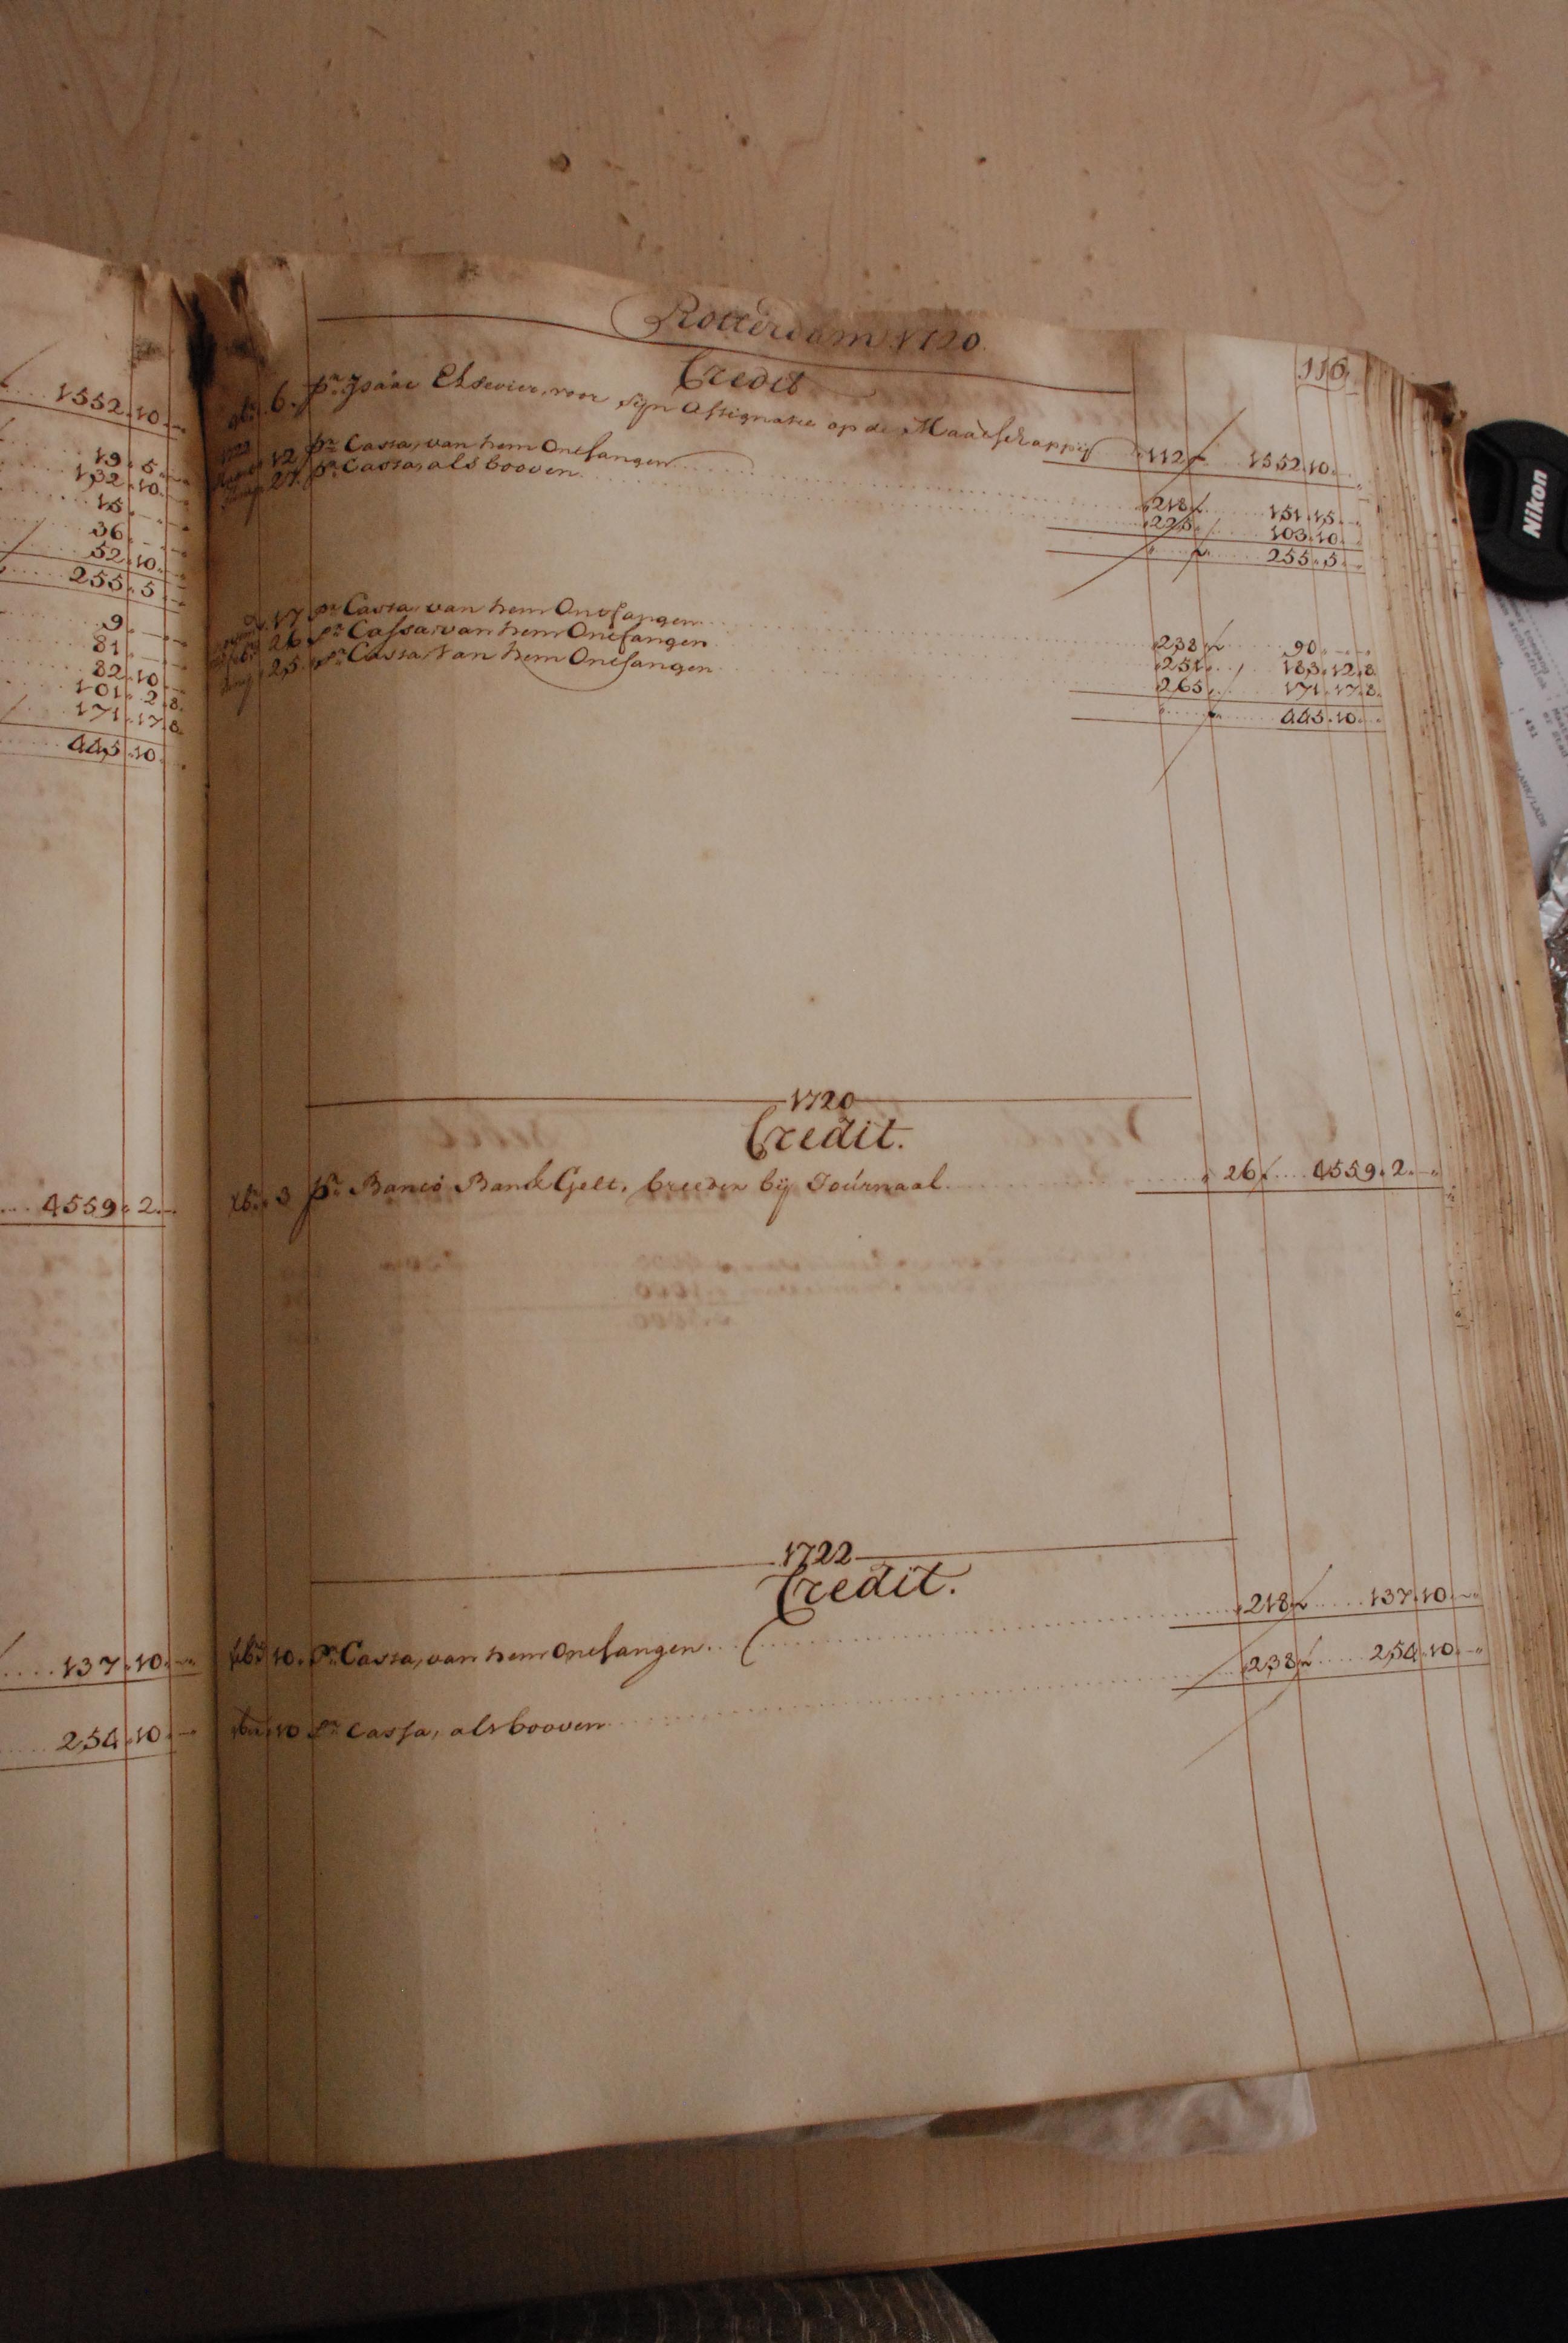 1552.10.
19.5.
132.10.
15.
36.
52.10.
255.5
9.
81.
82.10.
101.2.8.
171.17.8
445.10.
4559.2.
137.10.
254.10.
Rotterdam 1720.
116.
Credit
6. pr. Isaac Elsevier, voor sijn Assignatie op de Maatschappij 112 f 1552.10.
12 pr. Cassa, van hem Ontfangen 218 151.15.
27. pr. Cassa, als booven. 225 103.10.
255.5.
17 pr. Cassa, van hem Ontfangen 238 90.
26 pr. Cassa van hem Ontfangen 251 183.12.8
25. pr. Cassa, van hem Ontfangen 265 171.17.8.
445.10.
1720
Credit.
Xbr. 3 pr. Banco Banck Gelt, breeder bij Journaal 26 f 4559.2.
1722
Credit.
10. pr. Cassa, van hem Ontfangen 218 137.10.
10 pr. Cassa, als booven 238 254.10.
Nikon